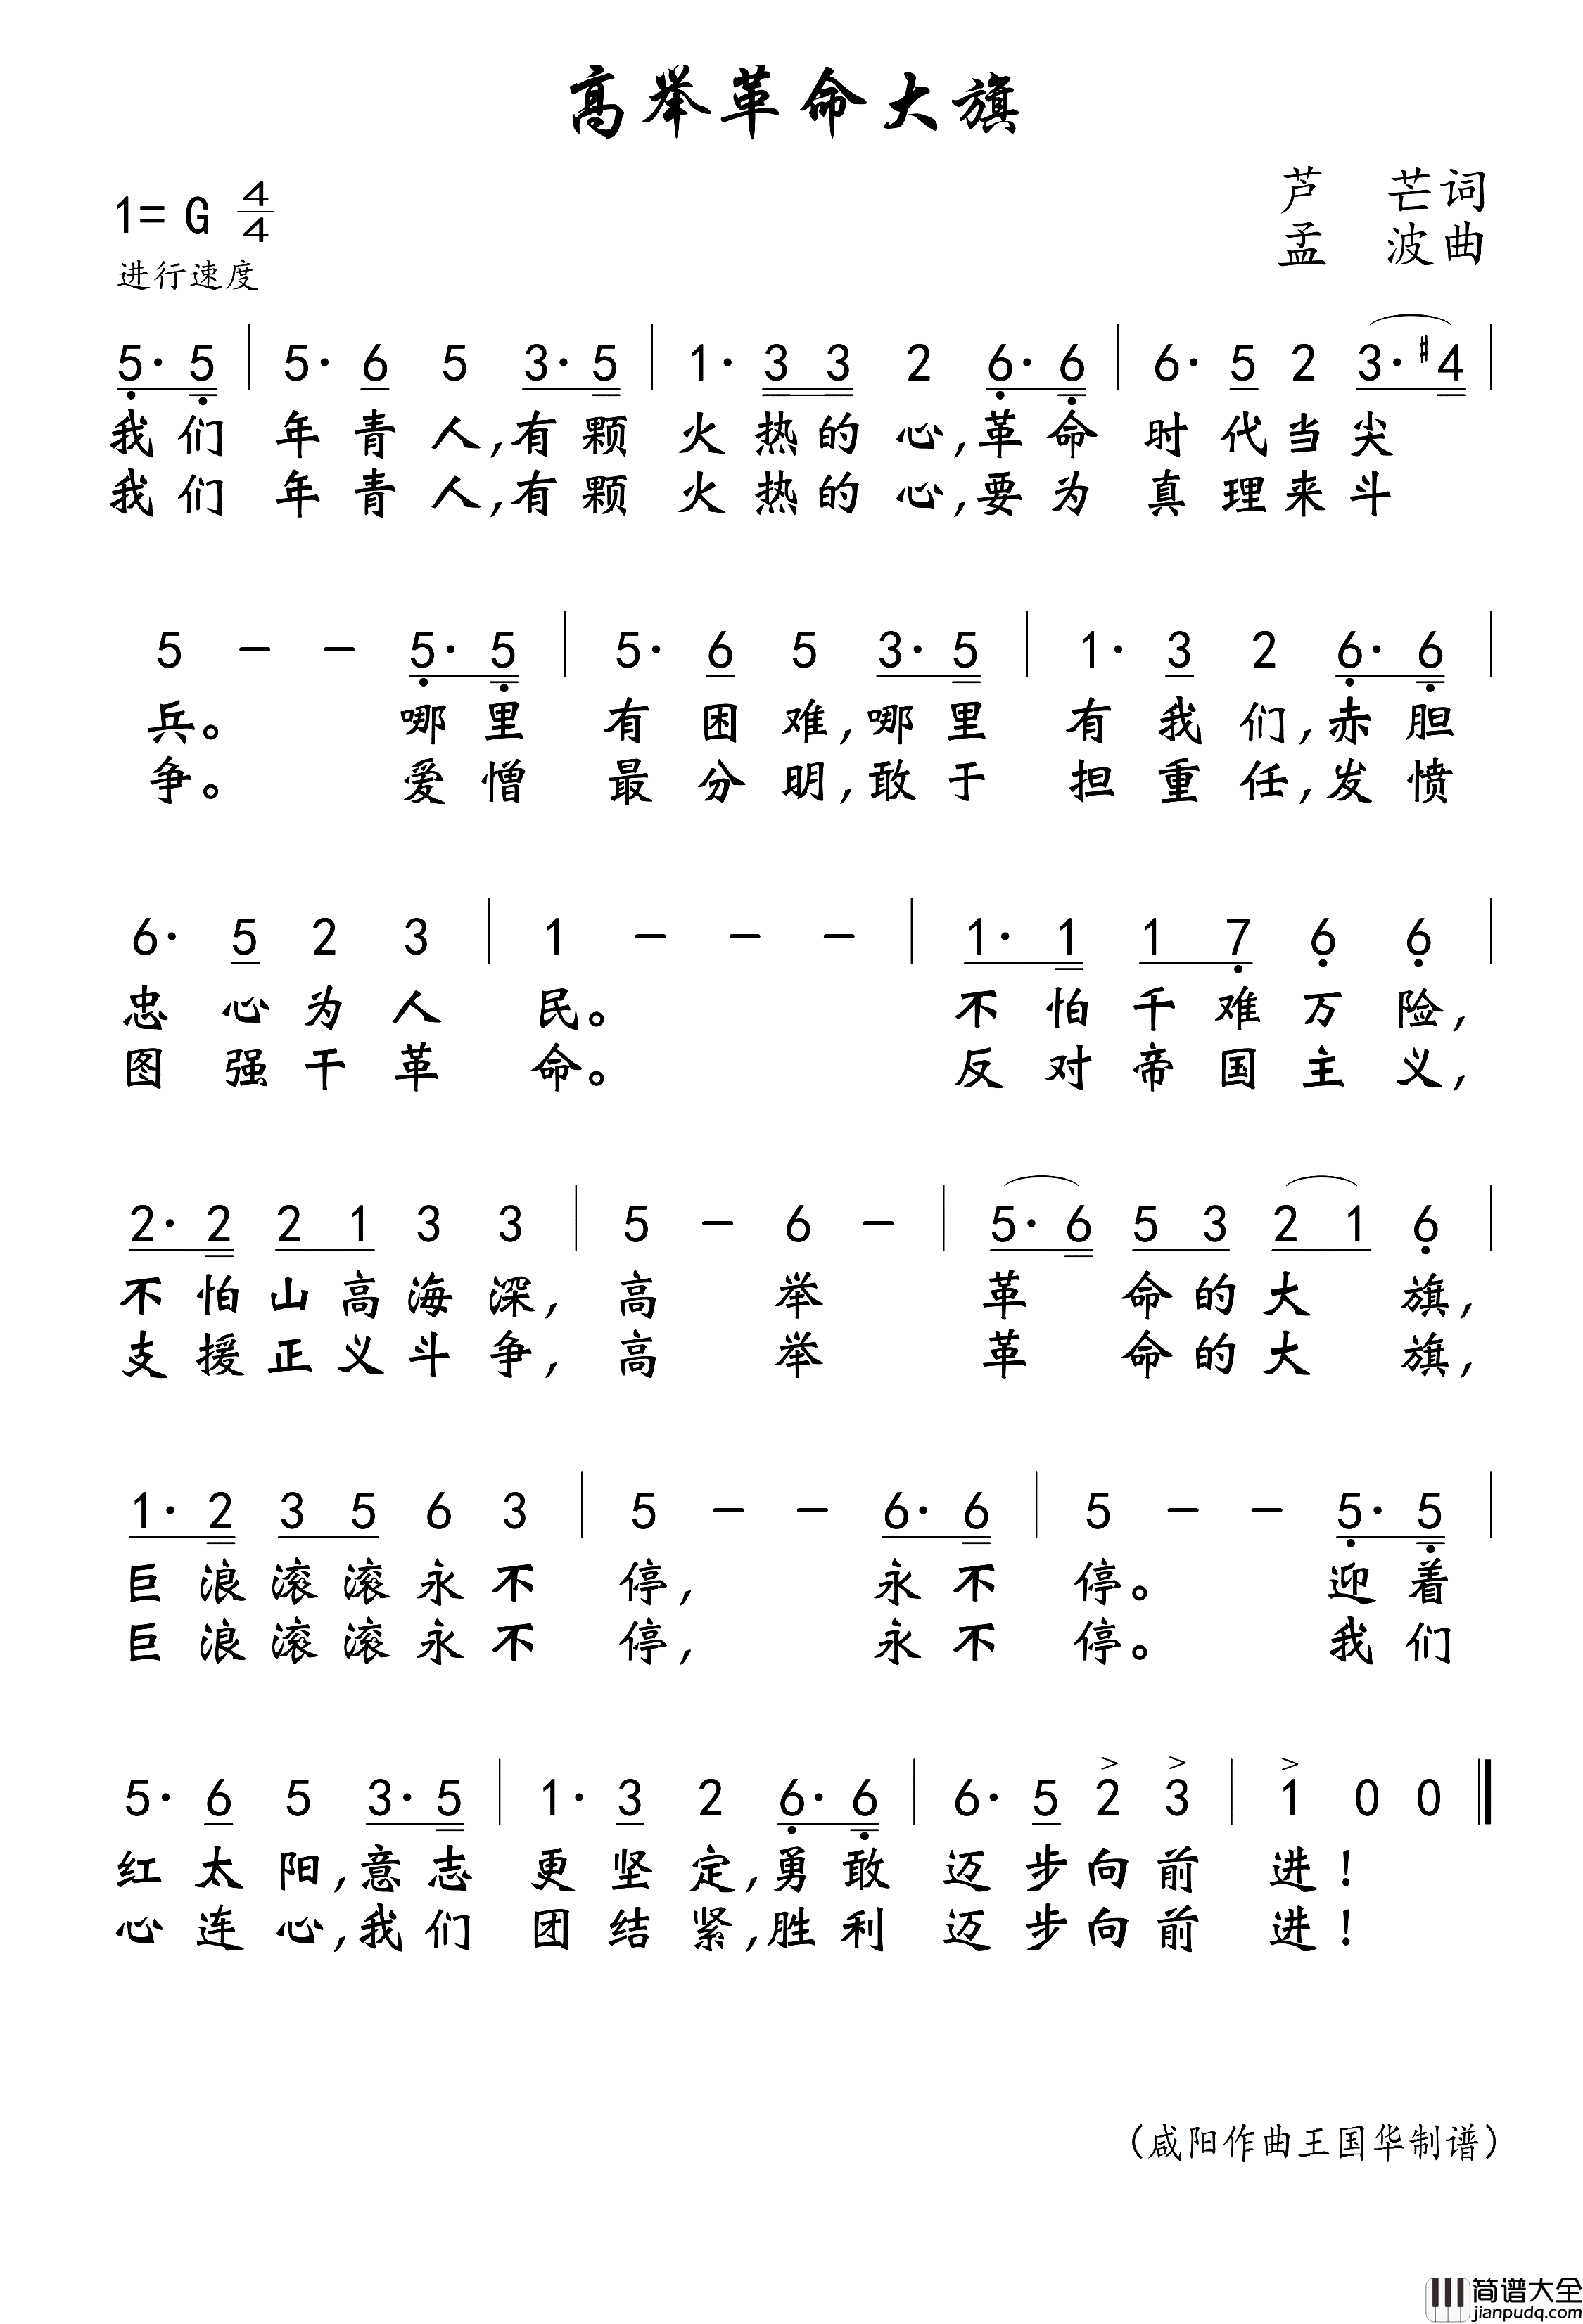 高举革命大旗
1= G 4/4
芦 芒词
孟 波曲
进行速度
5· 5 | 5· 6 5 3· 5 | 1· 3 3 2 6· 6 | 6· 5 2 3· #4 |
我们 年青人,有颗 火热的心,革命 时代当尖
我们 年青人,有颗 火热的心,要为 真理来斗
5 − − 5· 5 | 5· 6 5 3· 5 | 1· 3 2 6· 6 |
兵。 哪里 有困难,哪里 有我们,赤胆
争。 爱憎 最分明,敢于 担重任,发愤
6· 5 2 3 | 1 − − − | 1· 1 1 7 6 6 |
忠心为人 民。 不怕千难万险,
图强干革 命。 反对帝国主义,
2· 2 2 1 3 3 | 5 − 6 − | 5· 6 5 3 2 1 6 |
不怕山高海深, 高 举 革 命的大 旗,
支援正义斗争, 高 举 革 命的大 旗,
1· 2 3 5 6 3 | 5 − − 6· 6 | 5 − − 5· 5 |
巨浪滚滚永不 停, 永不 停。 迎着
巨浪滚滚永不 停, 永不 停。 我们
5· 6 5 3· 5 | 1· 3 2 6· 6 | 6· 5 > 2 > 3 | > 1 0 0 ‖
红太阳,意志 更坚定,勇敢 迈步向前 进!
心连心,我们 团结紧,胜利 迈步向前 进!
(咸阳作曲王国华制谱)
简谱大全
jianpudq.com